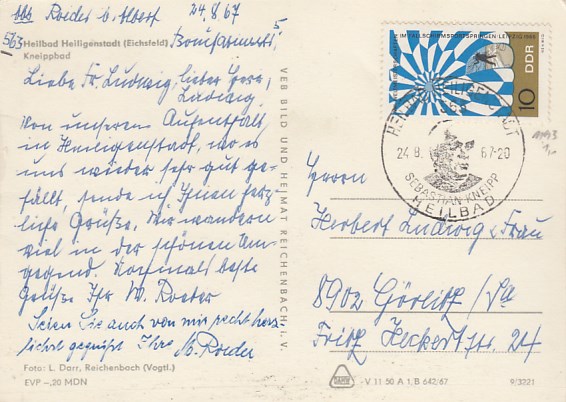 bbs Roeder b. Albert 24.8.67
5
563 Heilbad Heiligenstadt (Eichsfeld)
Kneippbad
Liebe Fr. Ludwig, lieber Herr
Ludwig,
Von unserem Aufenthalt
in Heiligenstadt, wo es
uns wieder sehr gut ge-
fällt, sende ich Ihnen herz-
liche Grüße. Wir wandern
viel in der schönen Um-
gegend. Nochmals beste
Grüße Ihr W. Roeder
Seien Sie auch von mir recht herz-
lichst gegrüßt Ihre M. Roeder
Foto: L. Darr, Reichenbach (Vogtl.)
EVP –,20 MDN
VEB BILD UND HEIMAT REICHENBACH i. V.
IM FALLSCHIRMSPORTSPRINGEN · LEIPZIG 1966
DDR
10
HEILIGENSTADT
24.8. 67-20
SEBASTIAN KNEIPP
HEILBAD
Herrn
Herbert Ludwig u. Frau
8902 Görlitz / Sa
Fritz Heckertstr. 24
V 11 50 A 1, B 642/67
9/3221